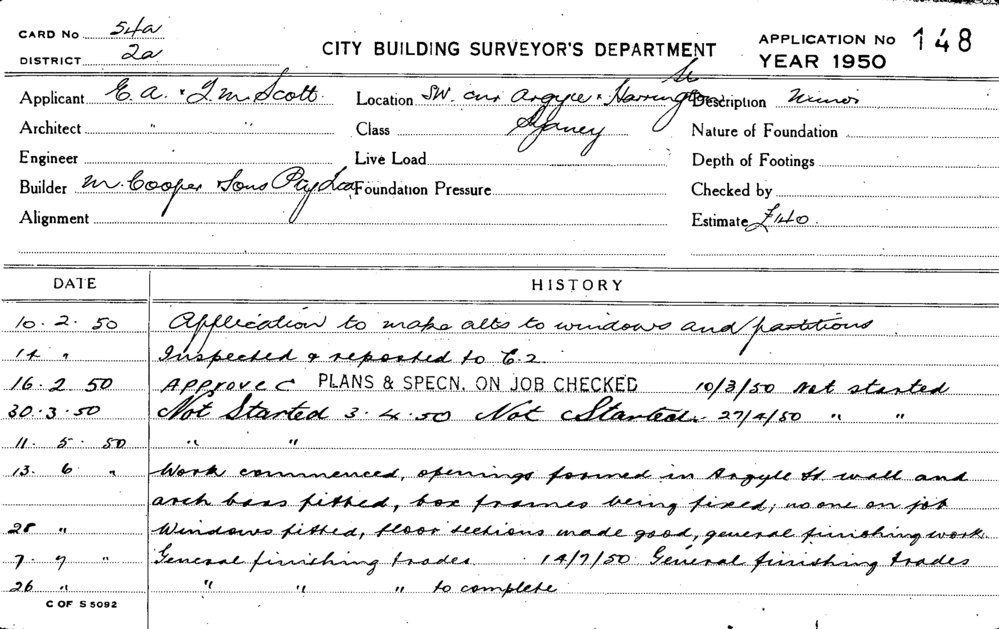 CARD No 54a
DISTRICT 2a
CITY BUILDING SURVEYOR'S DEPARTMENT
APPLICATION No 148
YEAR 1950
Applicant E. A. & J. M. Scott. Location SW. cnr Argyle & Harrington St Description Minor
Architect " " Class Sydney Nature of Foundation
Engineer Live Load Depth of Footings
Builder M. Cooper & Sons Pty Ltd Foundation Pressure Checked by
Alignment Estimate £140.
DATE HISTORY
10. 2. 50 Application to make alts to windows and/partitions
14 " Inspected & reported to C.2.
16. 2. 50 Approved PLANS & SPECN. ON JOB CHECKED 10/3/50 Not started
30. 3. 50 Not Started 3. 4. 50 Not Started. 27/4/50 " "
11. 5. 50 " "
13. 6 " Work commenced, openings formed in Argyle St wall and
arch bars fitted, box frames being fixed; no one on job
" Windows fitted, floor sections made good, general finishing work.
7. 7 " General finishing trades 14/7/50 General finishing trades
26 " " " " to complete
C OF S 5092